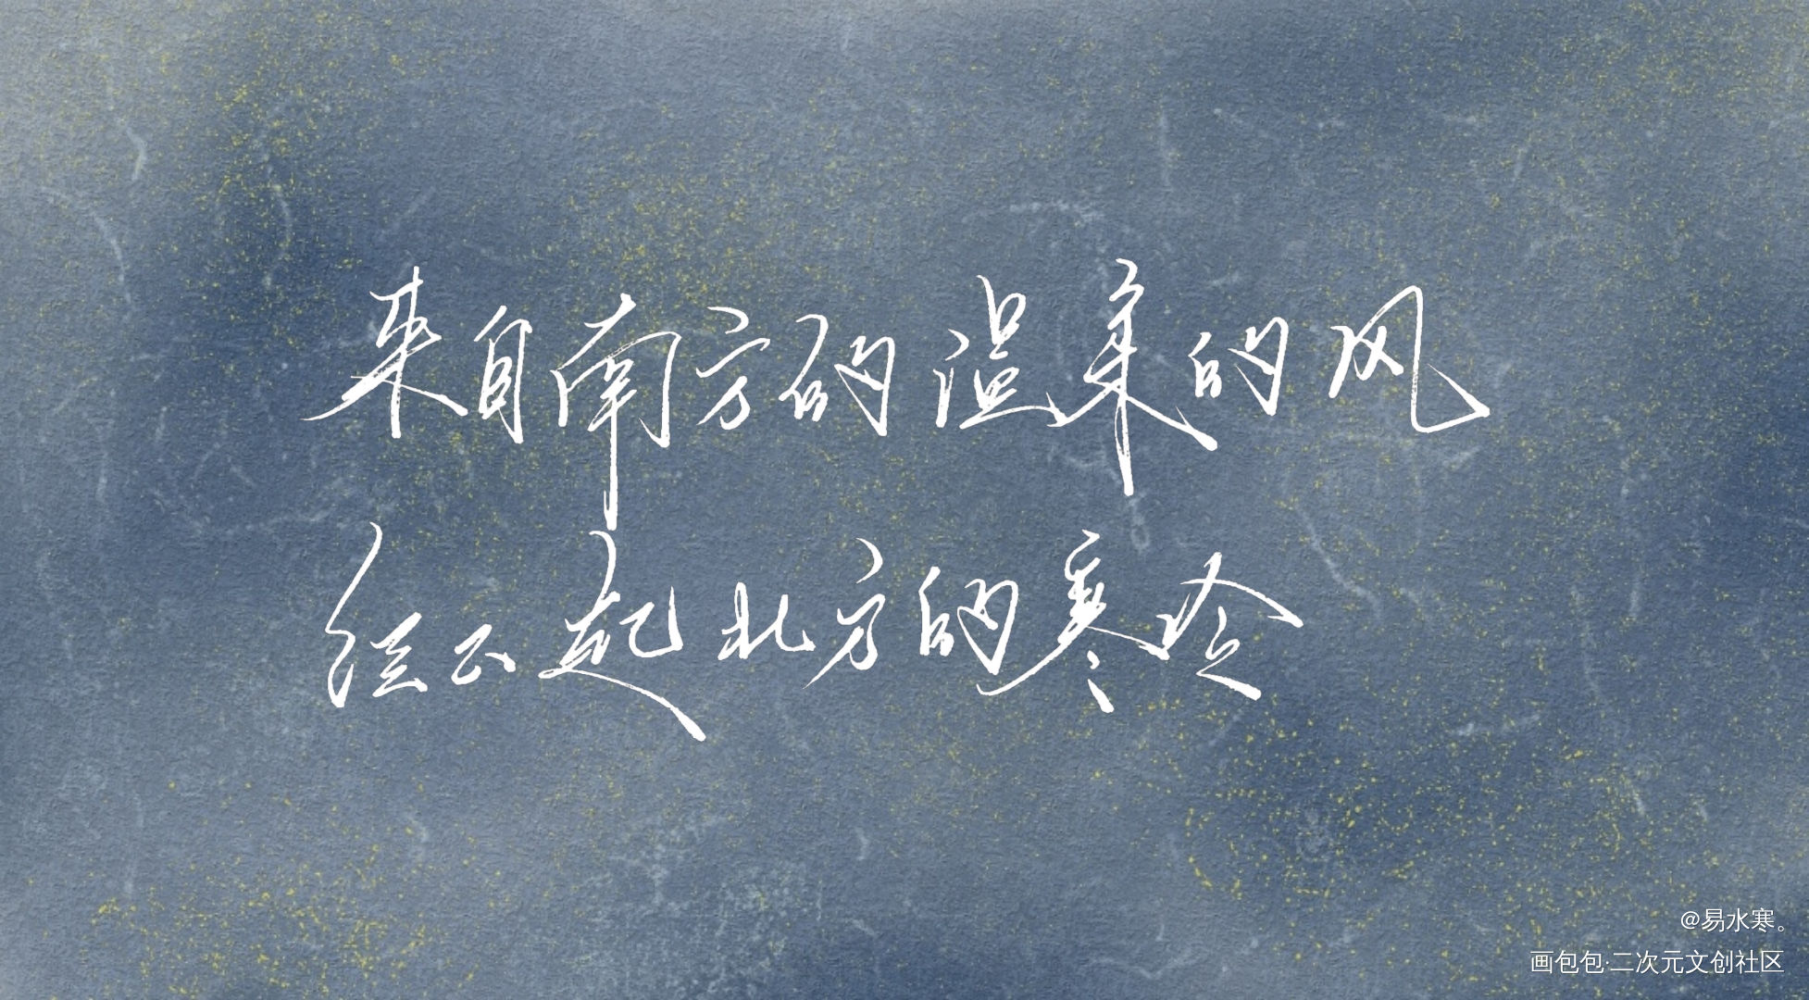 来自南方的温柔的风
经不起北方的寒冷
@易水寒。
画包包·二次元文创社区